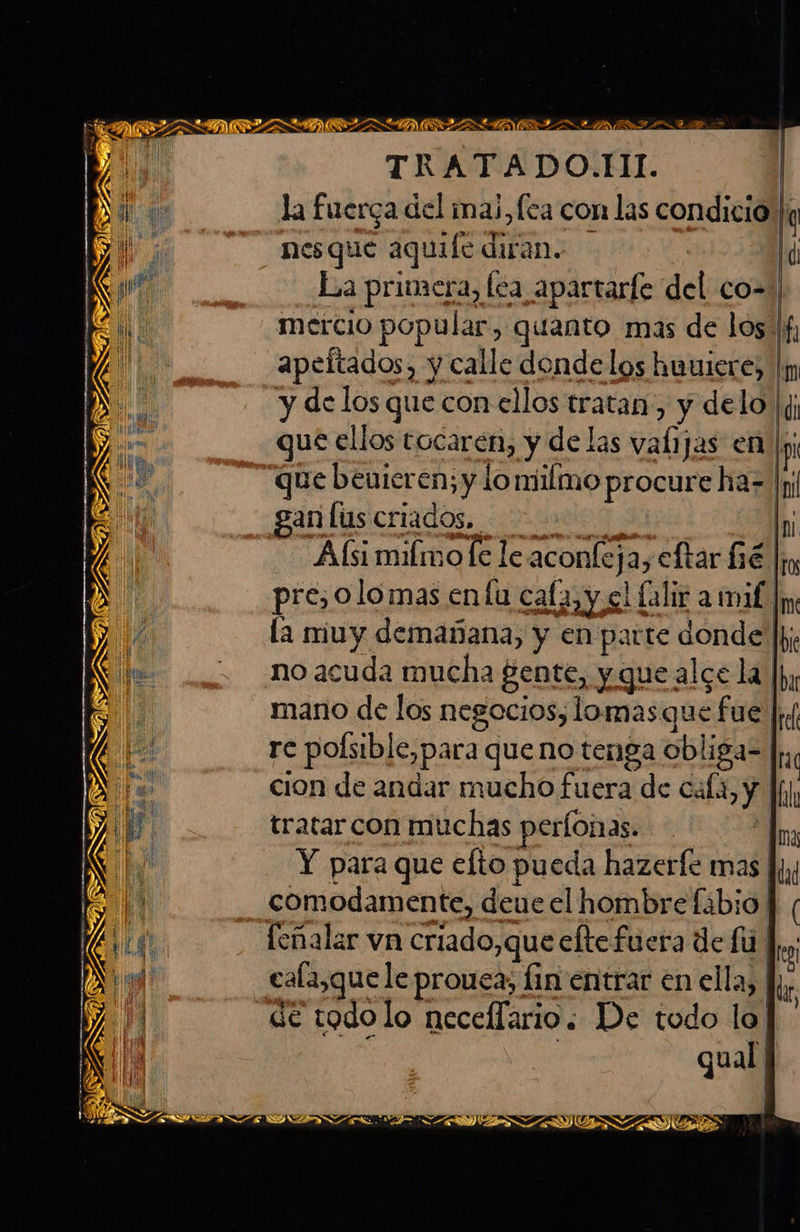 TRATADO.III.
la fuerça del mal, ſea con las condicio
nes que aquiſe diran.
La primera, ſea apartarſe del co-
mercio popular, quanto mas de los
apeſtados, y calle donde los huuiere,
y de los que con ellos tratan, y delo
que ellos tocaren, y de las vaſijas en
que beuieren; y lo miſmo procure ha-
gan ſus criados.
Aſsi miſmo ſe le aconſeja, eſtar ſié
pre, o lo mas en ſu caſa, y el ſalir a miſ
ſa muy demañana, y en parte donde
no acuda mucha gente, y que alçe la
mano de los negocios, lo mas que fue
re poſsible, para que no tenga obliga-
cion de andar mucho fuera de caſa, y
tratar con muchas perſonas.
Y para que eſto pueda hazerſe mas
comodamente, deue el hombre ſabio
ſeñalar vn criado, que eſte fuera de ſu
caſa, que le prouea, ſin entrar en ella,
de todo lo neceſſario. De todo lo
qual